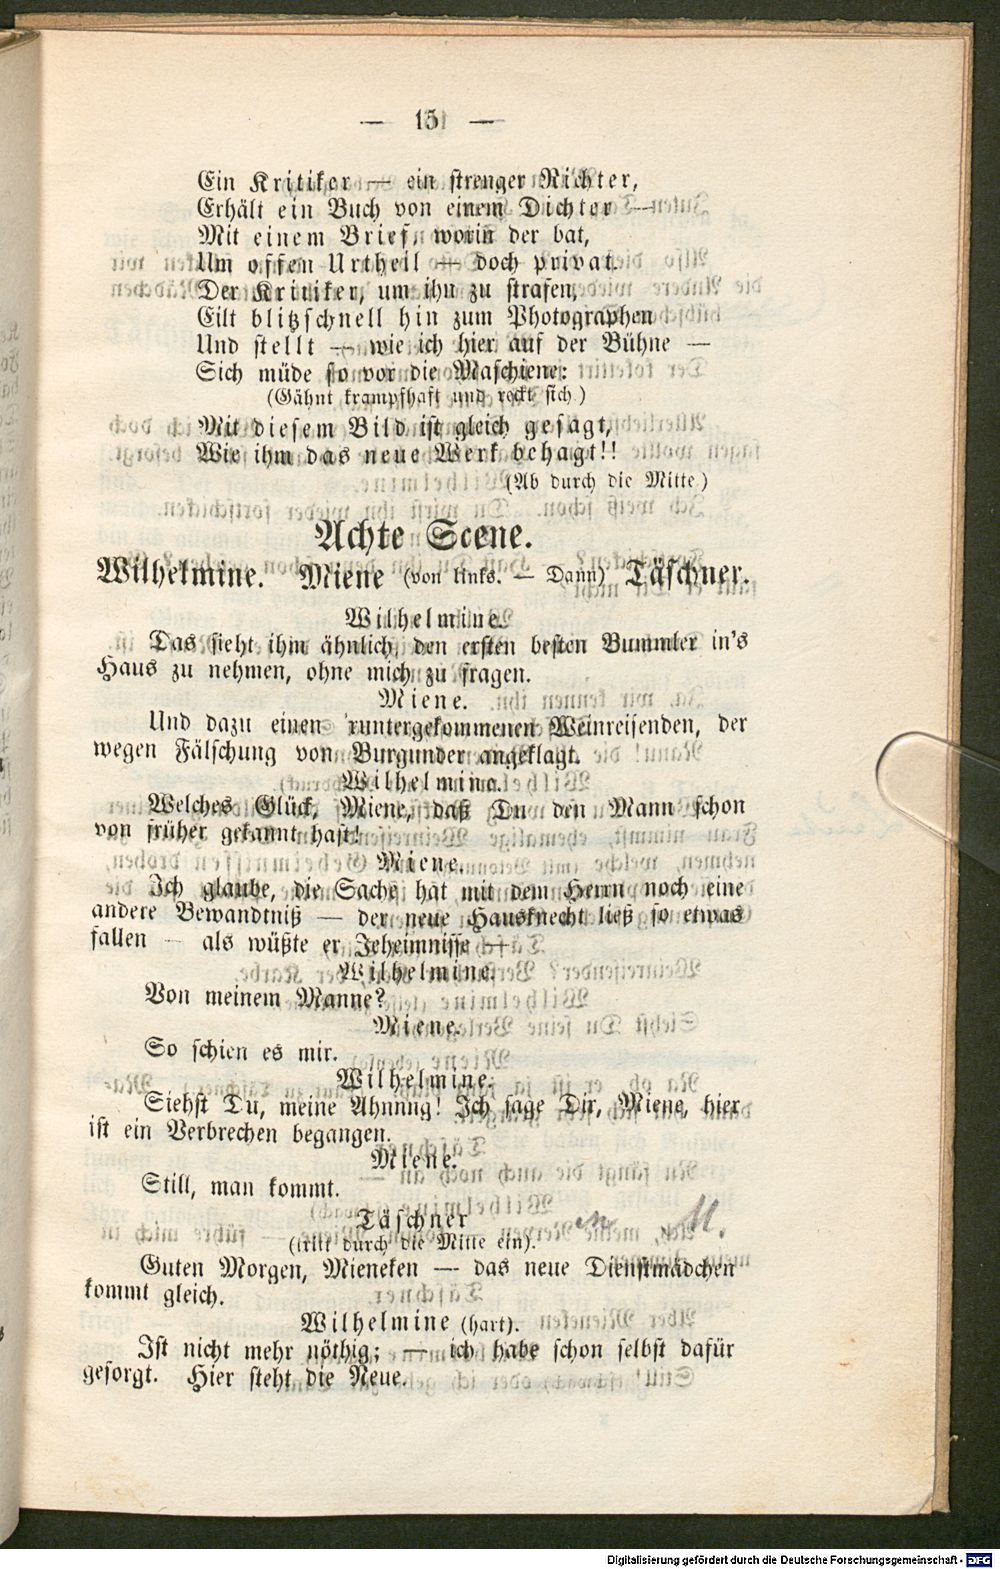 — 15 —
Ein Kritiker — ein strenger Richter,
Erhält ein Buch von einem Dichter —
Mit einem Brief, worin der bat,
Um offen Urtheil — doch privat.
Der Kritiker, um ihn zu strafen,
Eilt blitzschnell hin zum Photographen
Und stellt — wie ich hier auf der Bühne —
Sich müde so vor die Maschiene:
(Gähnt krampfhaft und reckt sich.)
Mit diesem Bild ist gleich gesagt,
Wie ihm das neue Werk behagt!!
(Ab durch die Mitte.)
Achte Scene.
Wilhelmine. Miene (von links. — Dann) Täschner.
Wilhelmine.
Das sieht ihm ähnlich, den ersten besten Bummler in's
Haus zu nehmen, ohne mich zu fragen.
Miene.
Und dazu einen 'runtergekommenen Weinreisenden, der
wegen Fälschung von Burgunder angeklagt.
Wilhelmine.
Welches Glück, Miene, daß Du den Mann schon
von früher gekannt hast!
Miene.
Ich glaube, die Sache hat mit dem Herrn noch eine
andere Bewandtniß — der neue Hausknecht ließ so etwas
fallen — als wüßte er Jeheimnisse —
Wilhelmine.
Von meinem Manne?
Miene.
So schien es mir.
Wilhelmine.
Siehst Du, meine Ahnnng! Ich sage Dir, Miene, hier
ist ein Verbrechen begangen.
Miene.
Still, man kommt.
Täschner
(tritt durch die Mitte ein).
Guten Morgen, Mieneken — das neue Dienstmädchen
kommt gleich.
Wilhelmine (hart).
Ist nicht mehr nöthig; — ich habe schon selbst dafür
gesorgt. Hier steht die Neue.
Digitalisierung gefördert durch die Deutsche Forschungsgemeinschaft - DFG